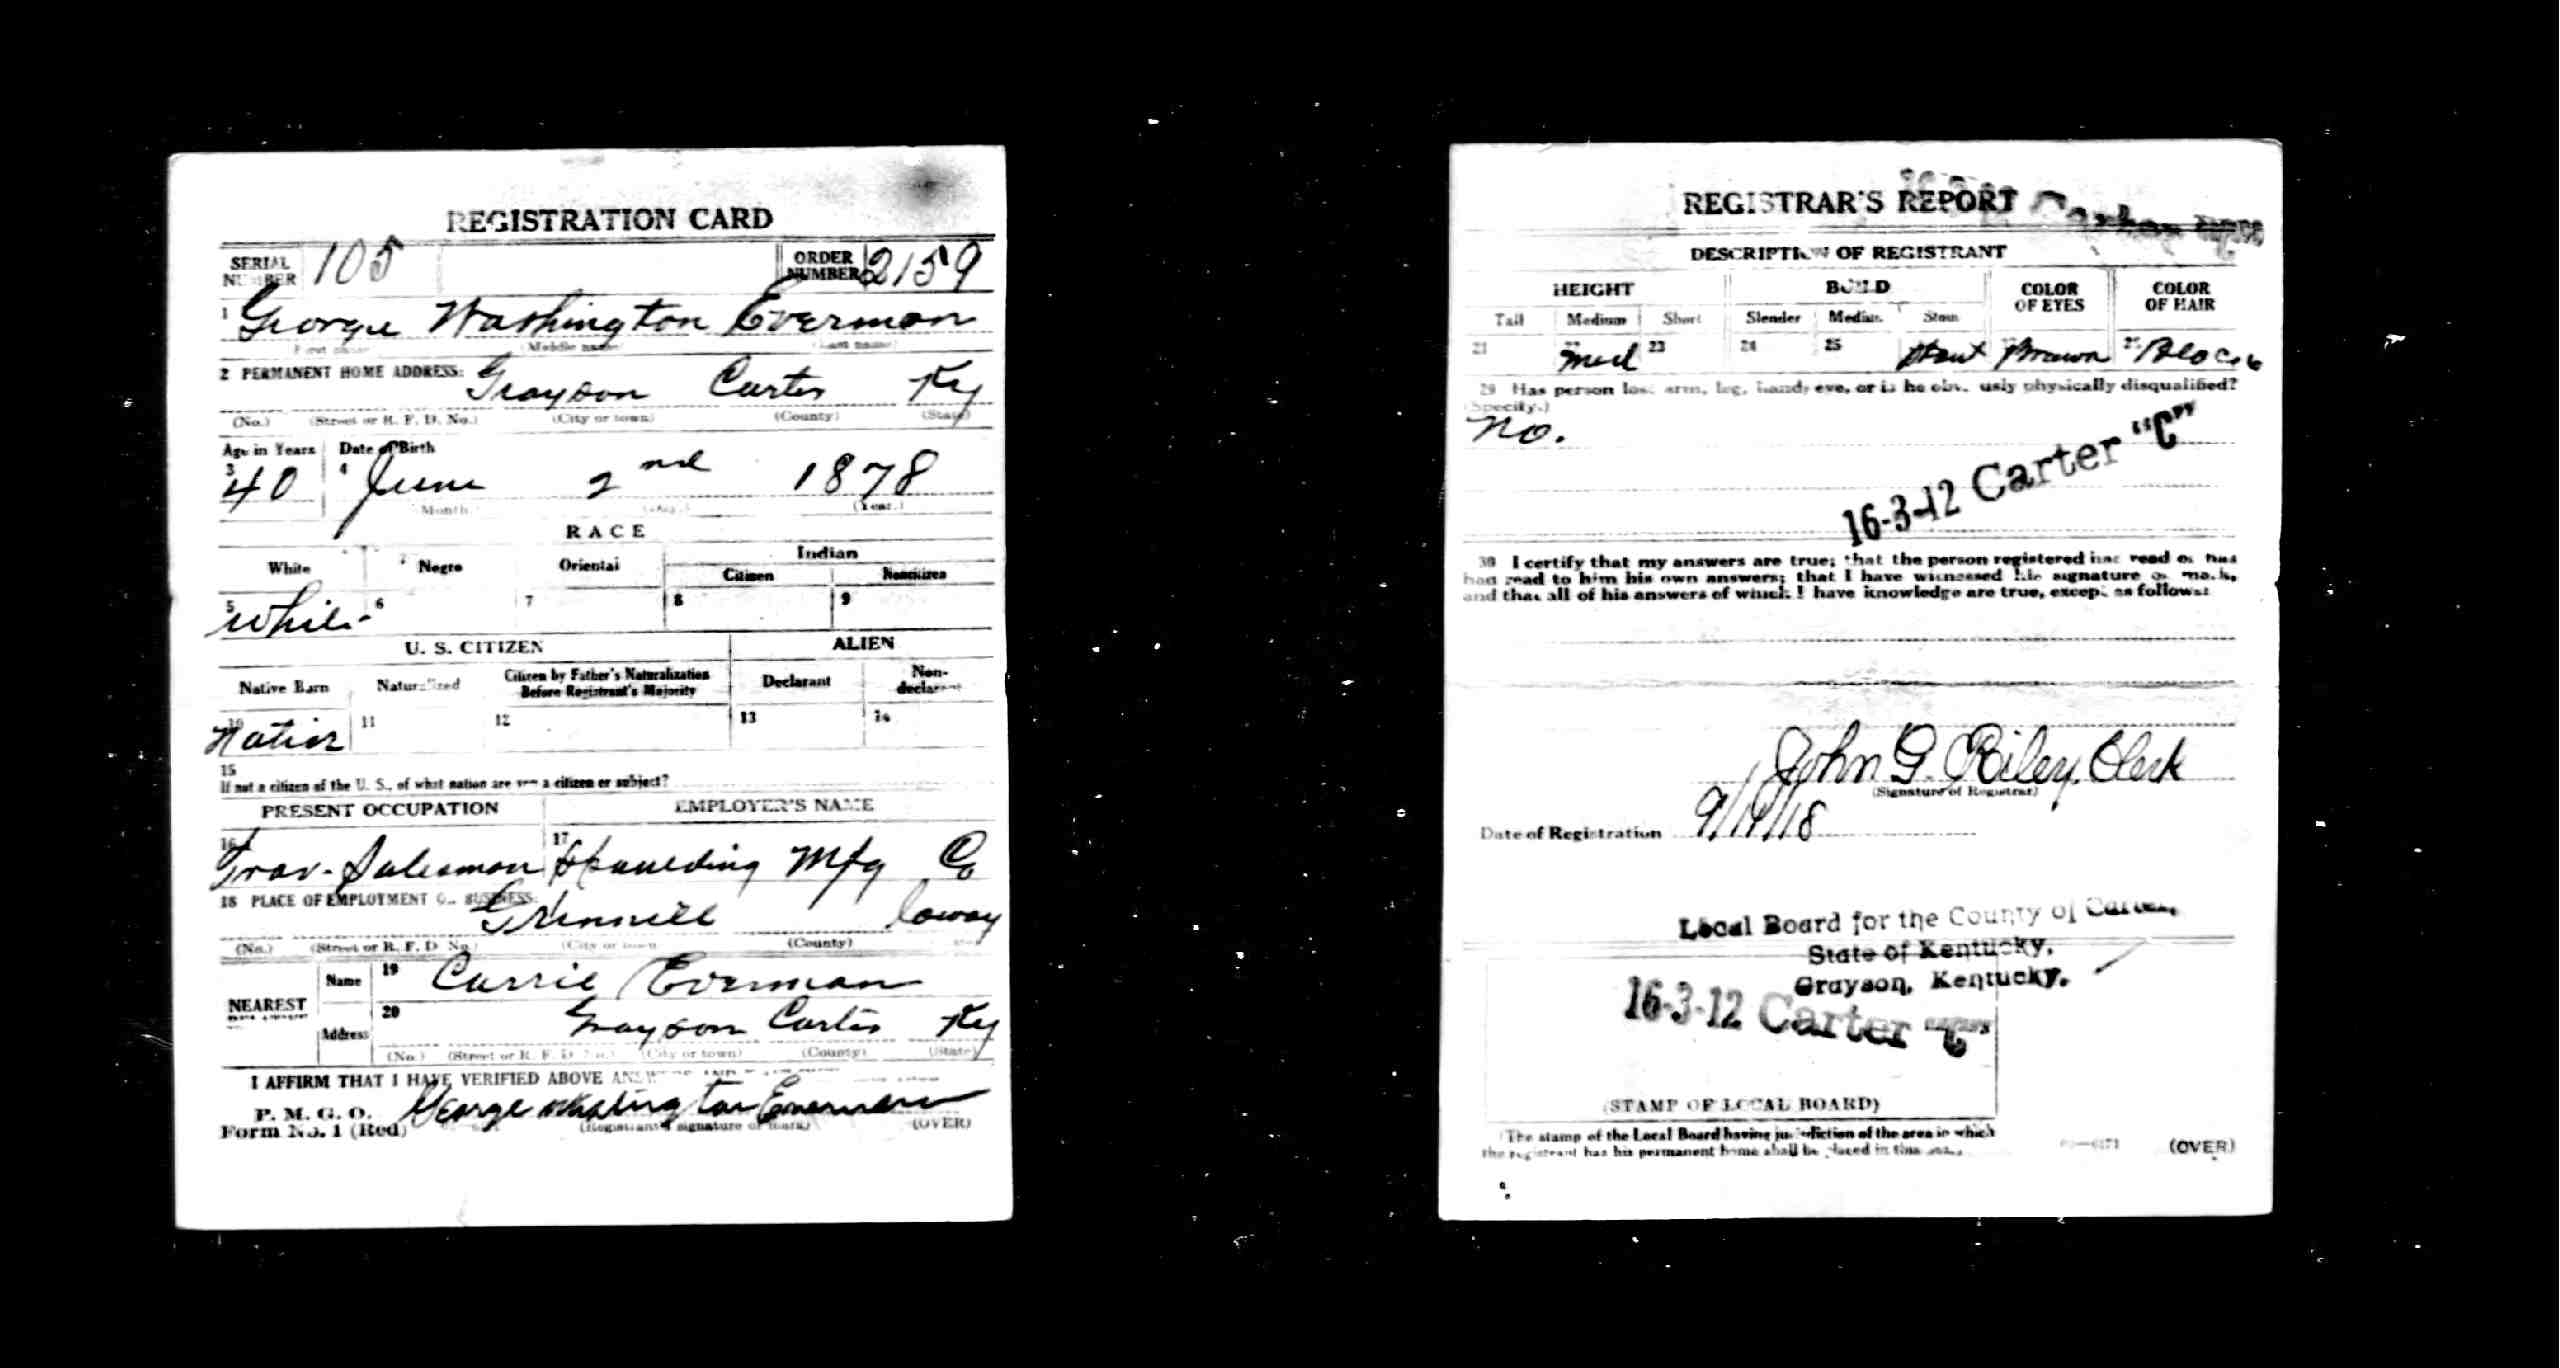 REGISTRATION CARD
SERIAL NUMBER 105 ORDER NUMBER 2159
1 George Washington Everman
First name Middle name Last name
2 PERMANENT HOME ADDRESS: Grayson Carter Ky
(No.) (Street or R. F. D. No.) (City or town) (County) (State)
Age in Years Date of Birth
3 40 4 June 2nd 1878
Month. (Day.) (Year.)
RACE
White Negro Oriental Indian
Citizen Noncitizen
5 White 6 7 8 9
U. S. CITIZEN ALIEN
Native Born Naturalized Citizen by Father's Naturalization Before Registrant's Majority Declarant Non-declarant
10 Native 11 12 13 14
15
If not a citizen of the U. S., of what nation are you a citizen or subject?
PRESENT OCCUPATION EMPLOYER'S NAME
16 Trav. Salesman 17 Spaulding Mfg Co
18 PLACE OF EMPLOYMENT OR BUSINESS: Grinnell Ioway
(No.) (Street or R. F. D. No.) (City or town) (County)
NEAREST Name 19 Carrie Everman
Address 20 Grayson Carter Ky
(No.) (Street or R. F. D. No.) (City or town) (County) (State)
I AFFIRM THAT I HAVE VERIFIED ABOVE ANSWERS AND
P. M. G. O.
Form No. 1 (Red) George Washington Everman
(Registrant's signature or mark) (OVER)
REGISTRAR'S REPORT
DESCRIPTION OF REGISTRANT
HEIGHT BUILD COLOR OF EYES COLOR OF HAIR
Tall Medium Short Slender Medium Stout
21 Med 23 24 25 Stout Brown Black
29 Has person lost arm, leg, hand, eye, or is he obviously physically disqualified?
(Specify.)
No.
16-3-12 Carter "C"
30 I certify that my answers are true; that the person registered has read or has
had read to him his own answers; that I have witnessed his signature or mark,
and that all of his answers of which I have knowledge are true, except as follows:
John G. Riley, Clerk
(Signature of Registrar)
Date of Registration 9/19/18
Local Board for the County of Carter,
State of Kentucky,
Grayson, Kentucky.
16-3-12 Carter "C"
(STAMP OF LOCAL BOARD)
(The stamp of the Local Board having jurisdiction of the area in which
the registrant has his permanent home shall be placed in this
(OVER)